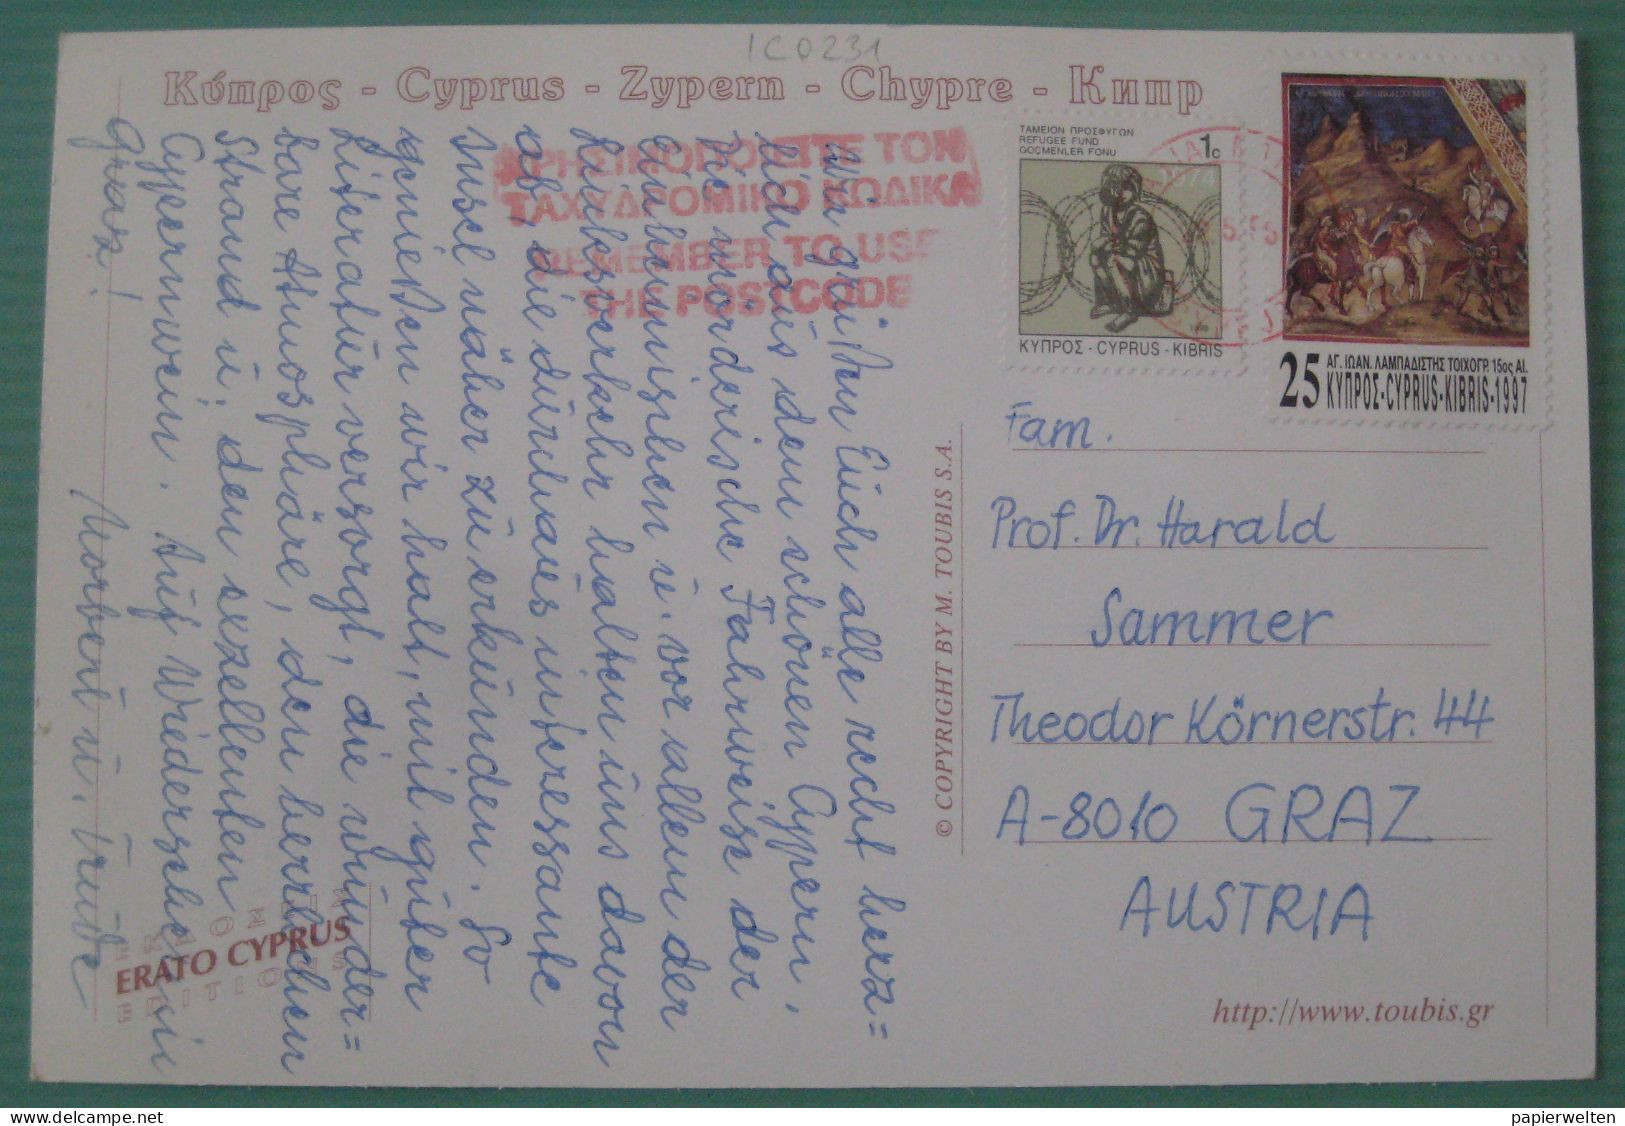 1C0231
Κύπρος - Cyprus - Zypern - Chypre - Кипр
ΧΡΗΣΙΜΟΠΟΙΕΙΤΕ ΤΟΝ
ΤΑΧΥΔΡΟΜΙΚΟ ΚΩΔΙΚΑ
REMEMBER TO USE
THE POSTCODE
ΤΑΜΕΙΟΝ ΠΡΟΣΦΥΓΩΝ
REFUGEE FUND
GÖÇMENLER FONU
1c
1974
ΚΥΠΡΟΣ - CYPRUS - KIBRIS
25 ΑΓ. ΙΩΑΝ. ΛΑΜΠΑΔΙΣΤΗΣ ΤΟΙΧΟΓΡ. 15ος ΑΙ.
ΚΥΠΡΟΣ-CYPRUS-KIBRIS-1997
Wir grüßen Euch alle recht herz=
lich aus dem schönen Cypern.
Die mörderische Fahrweise der
Einheimischen u. vor allem der
Linksverkehr halten uns davon
ab, die durchaus interessante
Insel näher zu erkunden. So
genießen wir halt, mit guter
Literatur versorgt, die wunder=
bare Atmosphäre, den herrlichen
Strand u. den exzellenten
Cypernwein. Auf Wiedersehen in
Graz!
Norbert u. Trude
Fam.
Prof. Dr. Harald
Sammer
Theodor Körnerstr. 44
A-8010 GRAZ
AUSTRIA
© COPYRIGHT BY M. TOUBIS S.A.
ERATO CYPRUS
http://www.toubis.gr
papierwelten